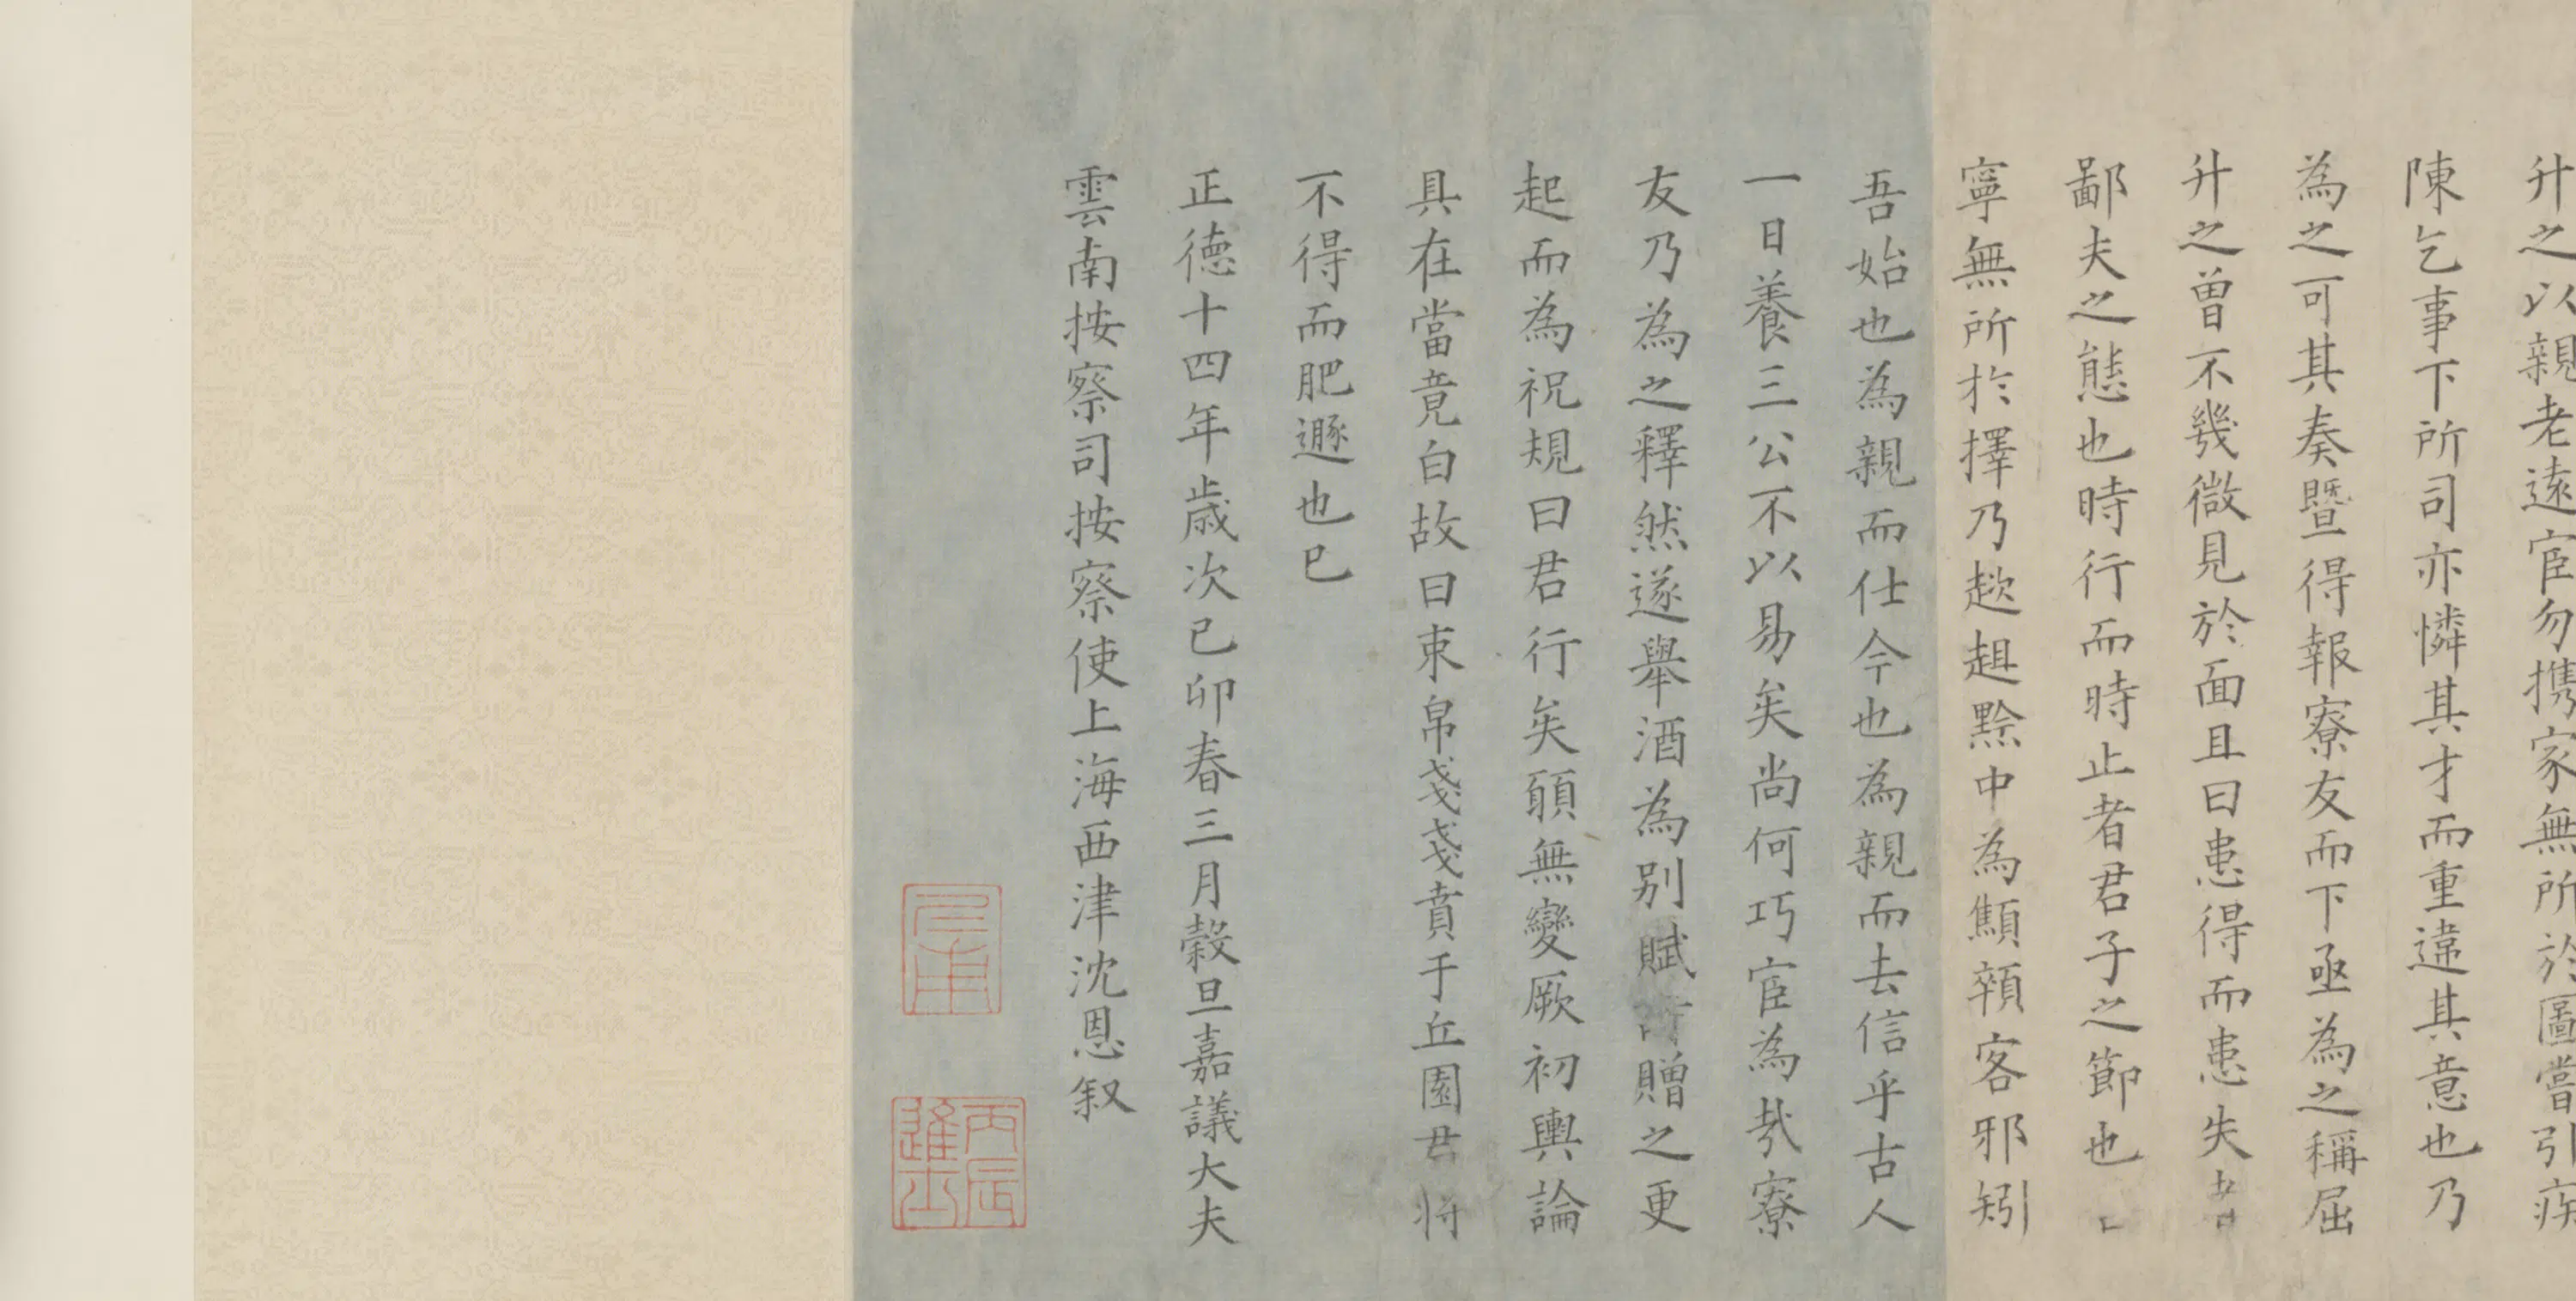 升之以親老遠宦勿携家無所於圖嘗引疾
陳乞事下所司亦憐其才而重違其意也乃
為之可其奏暨得報寮友而下亟為之稱屈
升之曾不幾微見於面且曰患得而患失者
鄙夫之態也時行而時止者君子之節也
寧無所於擇乃趑趄黥中為顦顇客邪矧
吾始也為親而仕今也為親而去信乎古人
一日養三公不以易矣尚何巧宦為哉寮
友乃為之釋然遂舉酒為別賦詩贈之更
起而為祝規曰君行矣願無變厥初輿論
具在當竟白故曰束帛戔戔賁于丘園君將
不得而肥遯也已
正德十四年歲次己卯春三月穀旦嘉議大夫
雲南按察司按察使上海西津沈恩叙
仁甫
丙辰進士